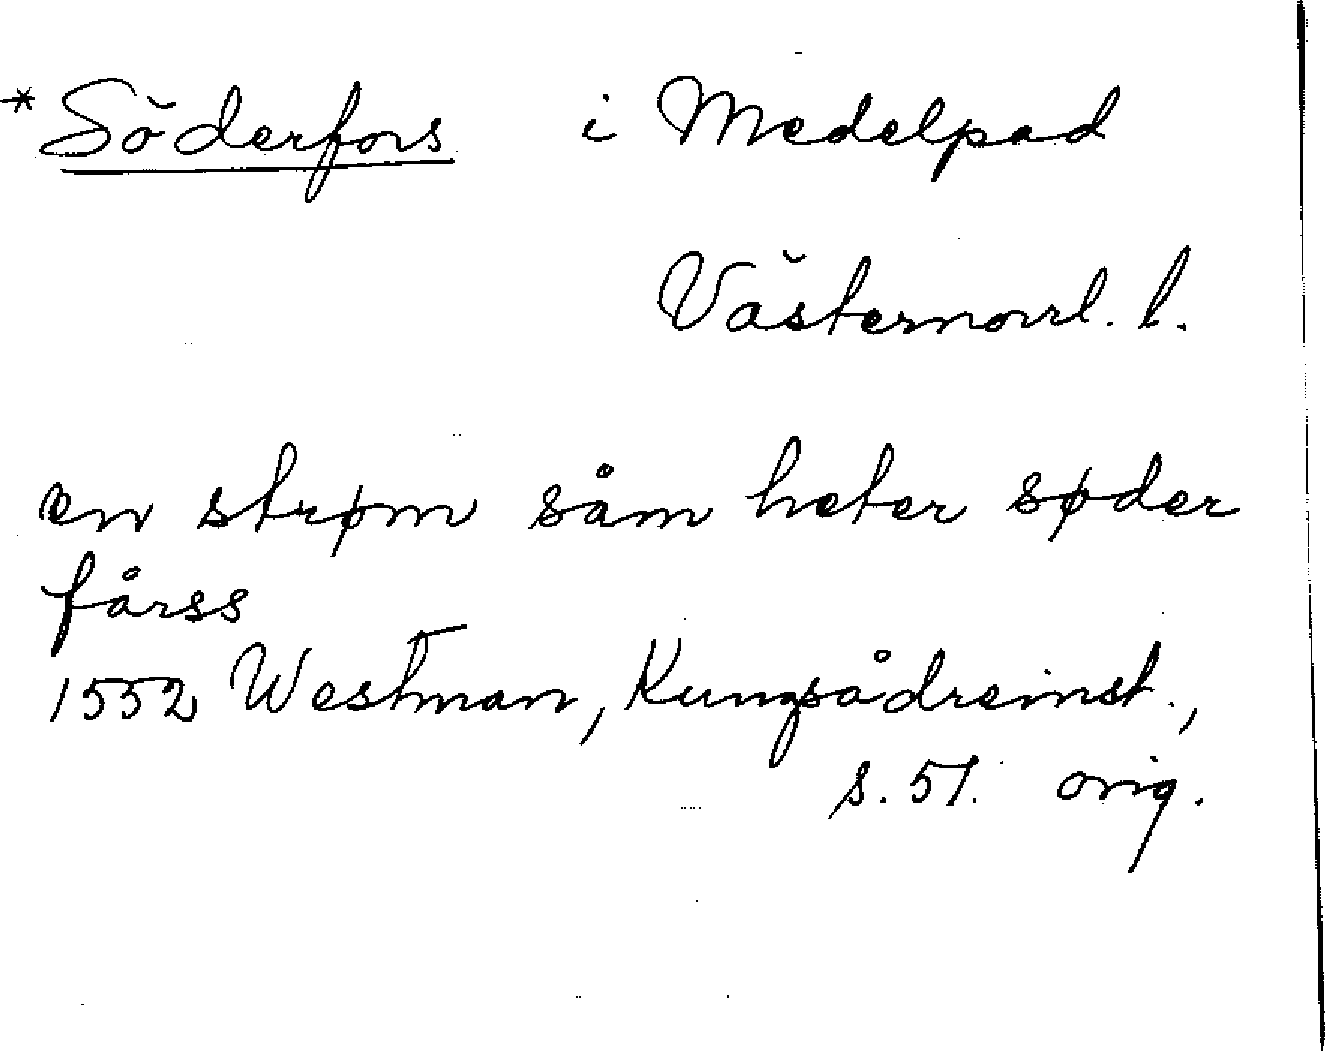 * Söderfors i Medelpad
Västernorrl. l.
en strøm såm heter søder
fårss
1552 Westman, Kungsådreinst.,
s. 51. orig.